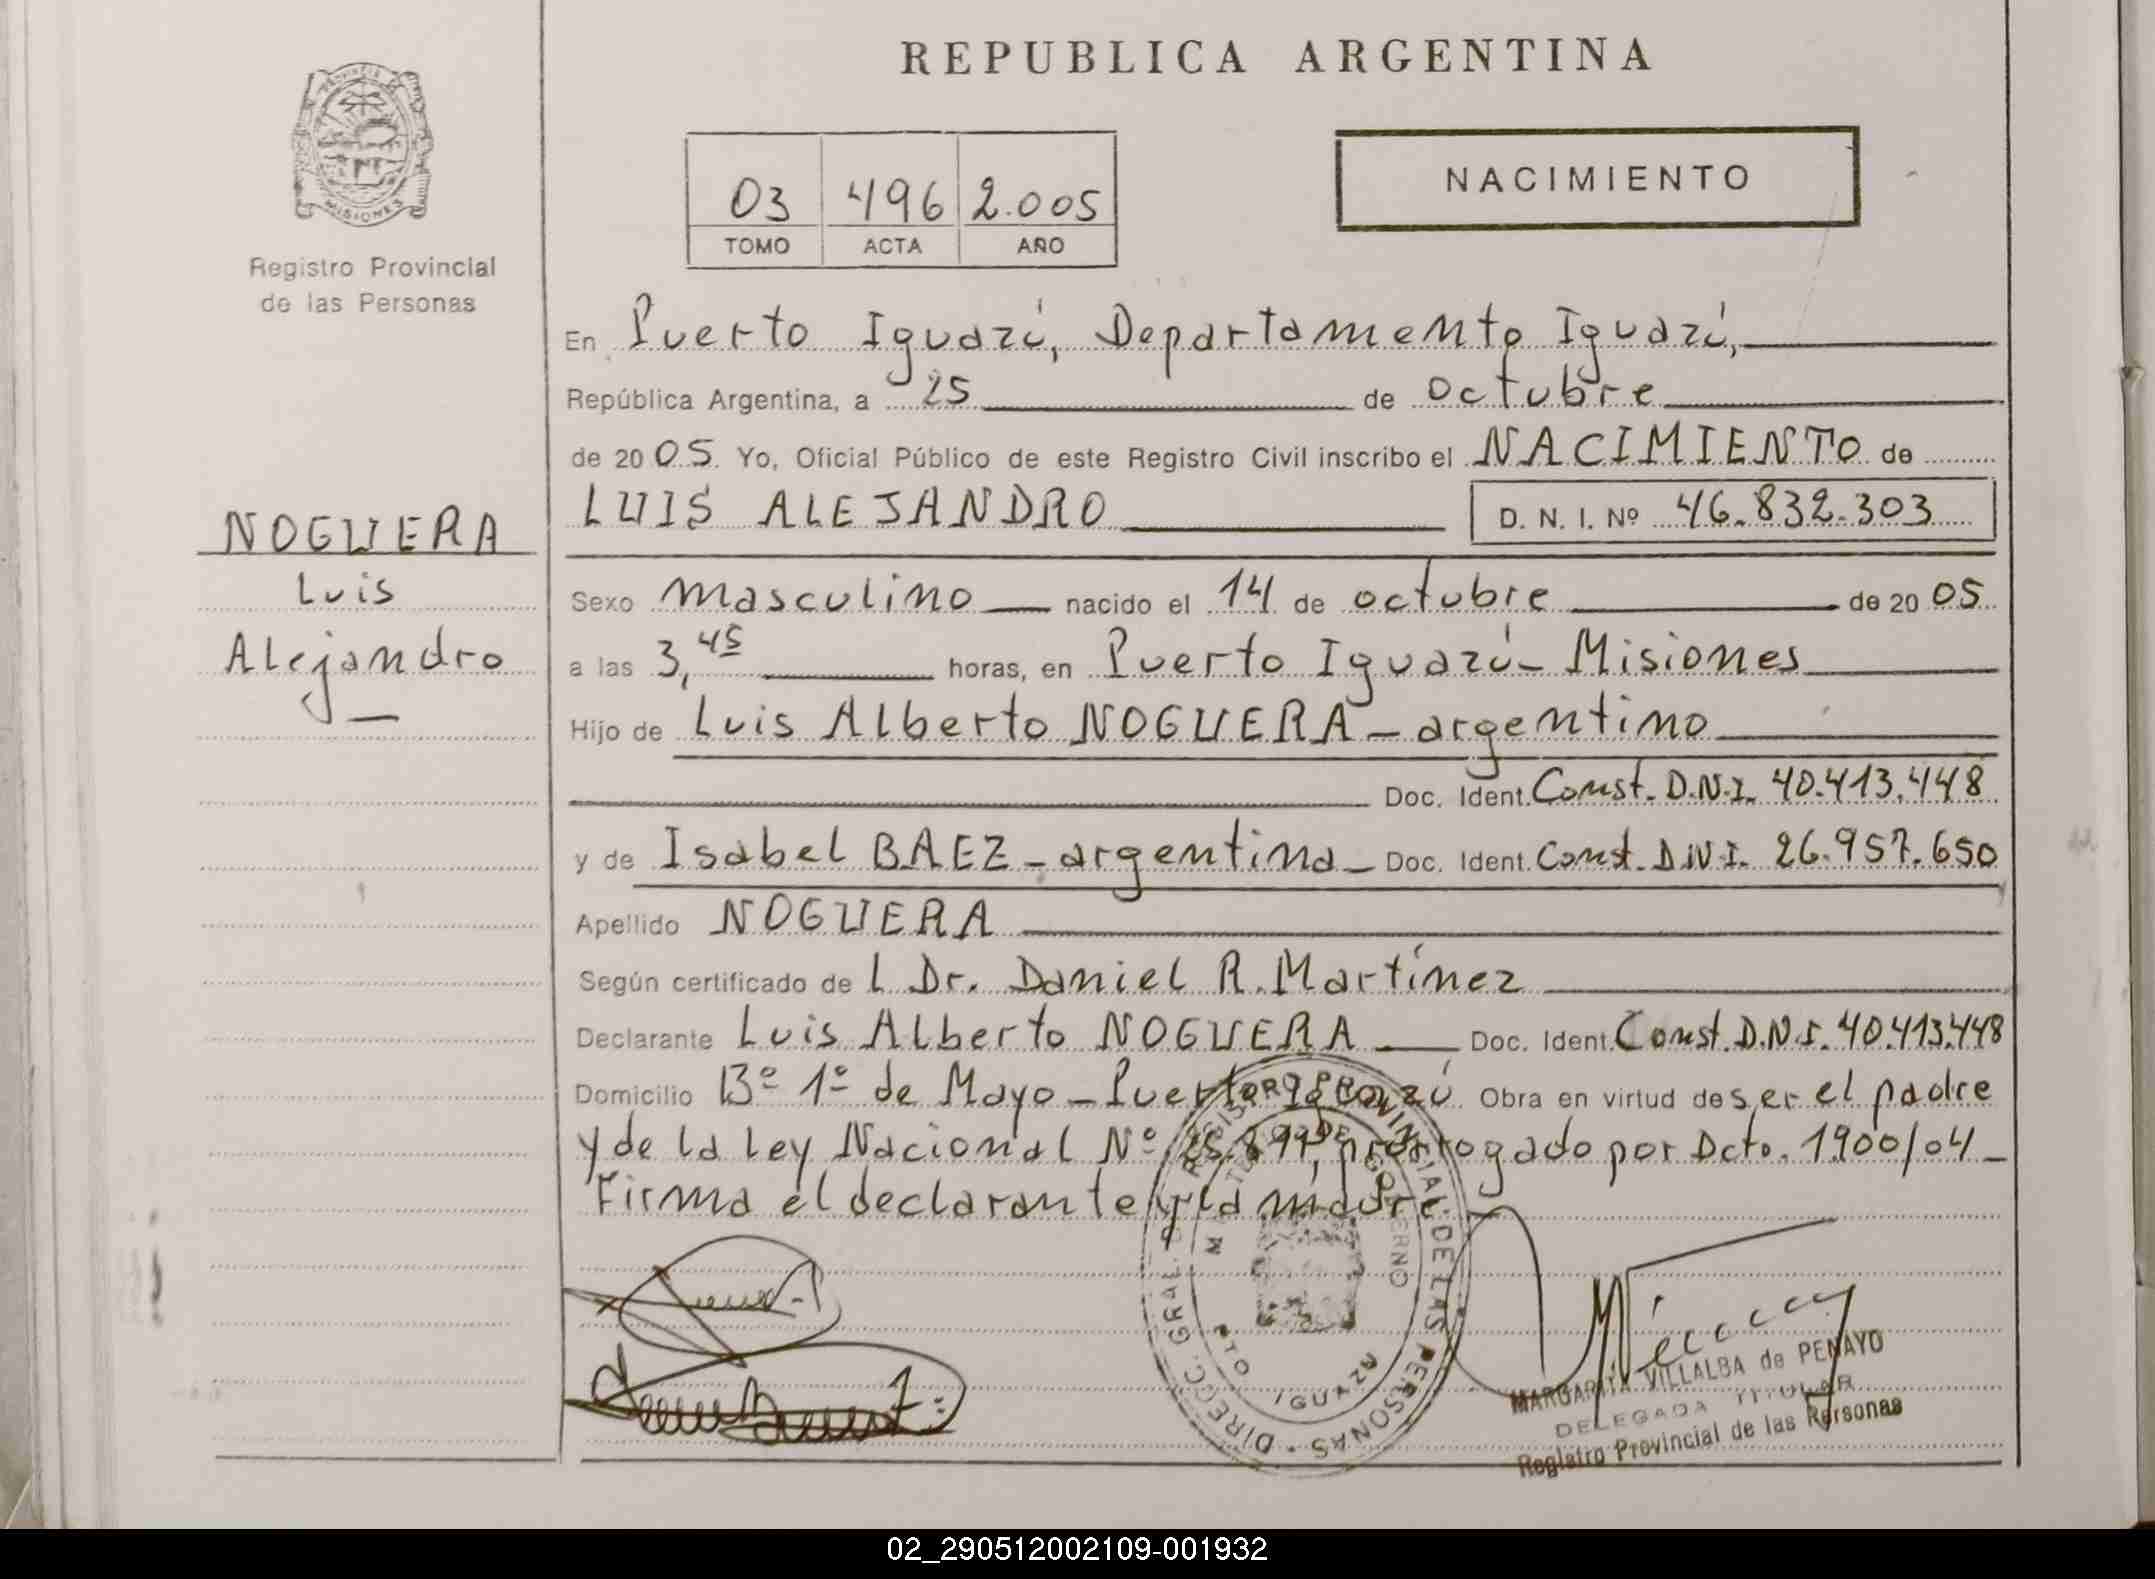 REPUBLICA ARGENTINA
PROVINCIA DE
MISIONES
Registro Provincial
de las Personas
03 496 2.005
TOMO ACTA AÑO
NACIMIENTO
NOGUERA
Luis
Alejandro
En Puerto Iguazú, Departamento Iguazú,
República Argentina, a 25 de octubre
de 2005. Yo, Oficial Público de este Registro Civil inscribo el NACIMIENTO de
LUIS ALEJANDRO D. N. I. Nº 46.832.303
Sexo masculino nacido el 14 de octubre de 2005
a las 3,45 horas, en Puerto Iguazú - Misiones
Hijo de Luis Alberto NOGUERA - argentino
Doc. Ident. Const. D.N.I. 40.413.448
y de Isabel BAEZ - argentina - Doc. Ident. Const. D.N.I. 26.957.650
Apellido NOGUERA
Según certificado del Dr. Daniel R. Martínez
Declarante Luis Alberto NOGUERA Doc. Ident. Const. D.N.I. 40.413.448
Domicilio Bº 1º de Mayo - Puerto Iguazú Obra en virtud de ser el padre
y de la Ley Nacional Nº 25.819, prorrogado por Dcto. 1900/04 -
Firma el declarante y la madre.
DIRECC. GRAL. REGISTRO PROVINCIAL DE LAS PERSONAS
GOBIERNO
PTO IGUAZU
MARGARITA VILLALBA de PENAYO
DELEGADA TITULAR
Registro Provincial de las Personas
02_290512002109-001932